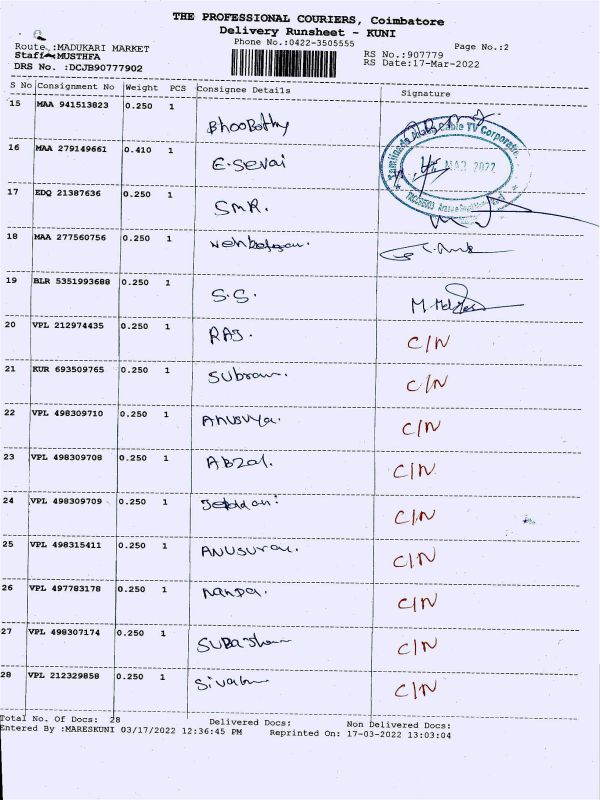 THE PROFESSIONAL COURIERS, Coimbatore
Delivery Runsheet - KUNI
Phone No.:0422-3505555
Page No.:2
Route :MADUKARI MARKET
Staff :MUSTHFA
DRS No. :DCJB90777902
RS No.:907779
RS Date:17-Mar-2022
S No Consignment No Weight PCS Consignee Details Signature
15 MAA 941513823 0.250 1 Bhoobathy
16 MAA 279149661 0.410 1 E-Sevai
MAR 2022
17 EDQ 21387636 0.250 1 SMR.
18 MAA 277560756 0.250 1
19 BLR 5351993688 0.250 1 S.S.
20 VPL 212974435 0.250 1 RAJ. C/N
21 KUR 693509765 0.250 1 C/N
22 VPL 498309710 0.250 1 Anusuya. C/N
23 VPL 498309708 0.250 1 Abzal. C/N
24 VPL 498309709 0.250 1 C/N
25 VPL 498315411 0.250 1 C/N
26 VPL 497783178 0.250 1 C/N
27 VPL 498307174 0.250 1 C/N
28 VPL 212329858 0.250 1 C/N
Total No. Of Docs: 28 Delivered Docs: Non Delivered Docs:
Entered By :MARESKUNI 03/17/2022 12:36:45 PM Reprinted On: 17-03-2022 13:03:04